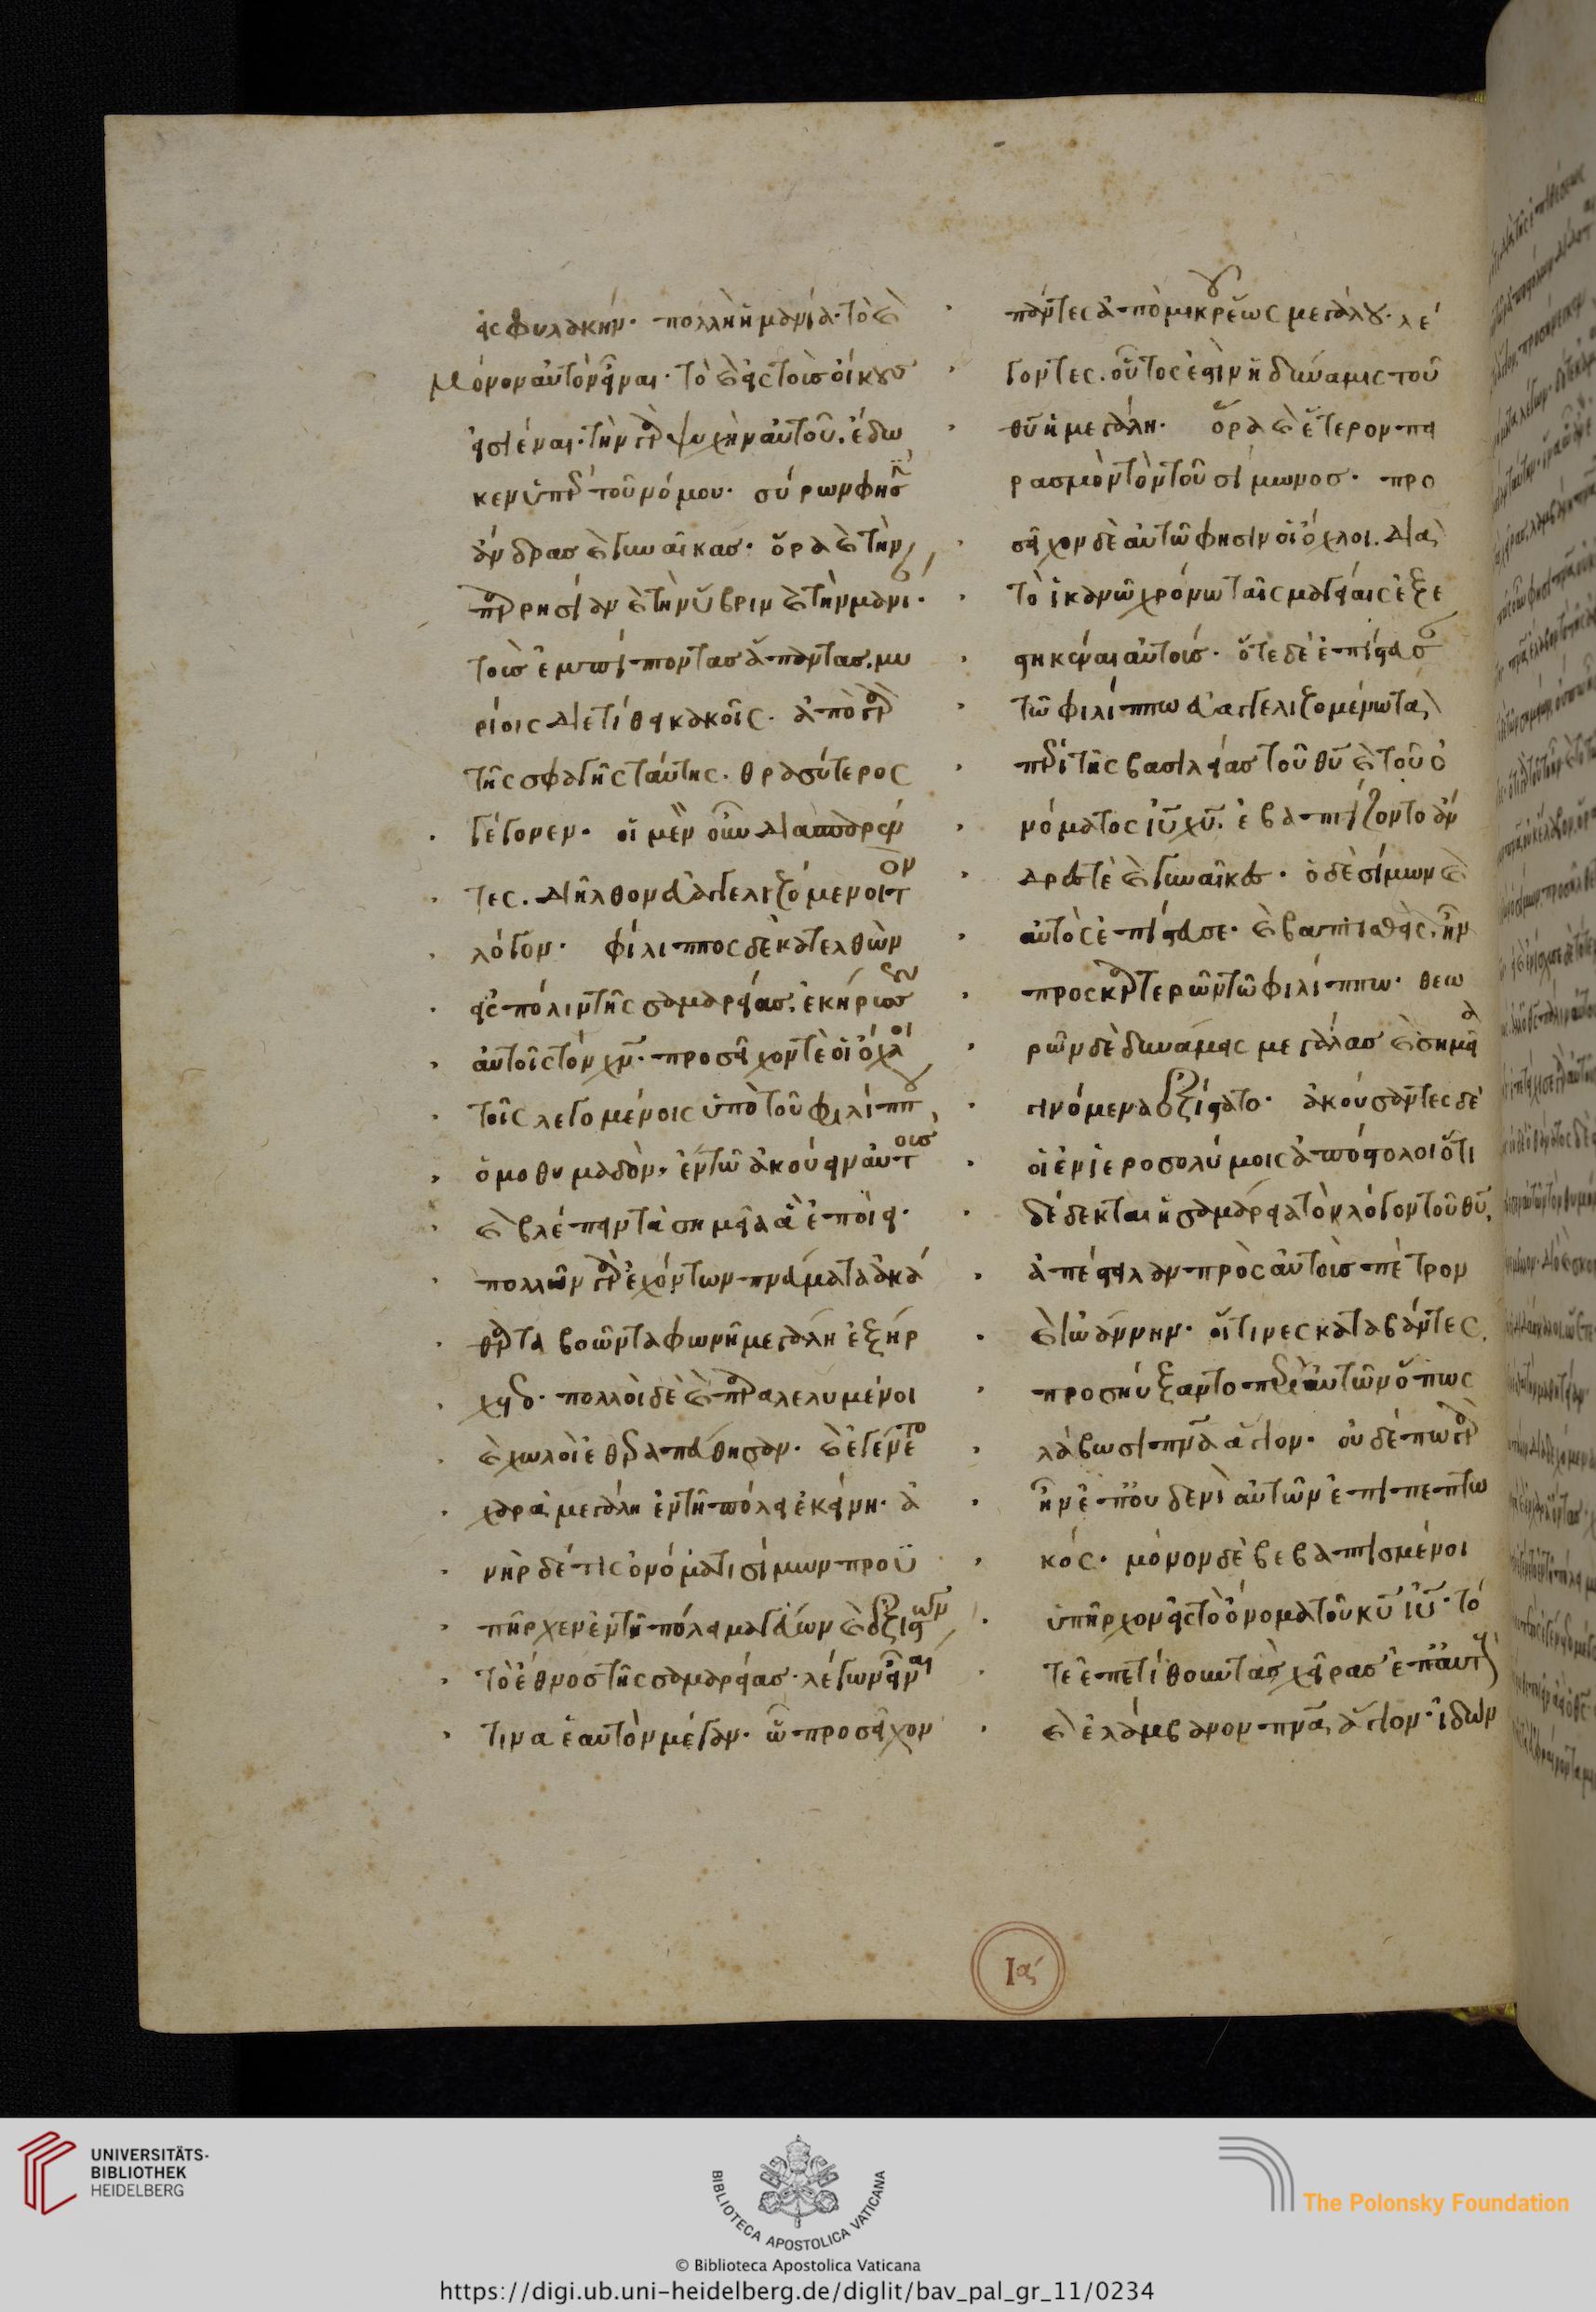 εἰς φυλακήν. πολλὴ ἡ μανία. τὸ καὶ
μόνον αὐτὸν εἶναι. τὸ καὶ εἰς τοὺς οἴκους
εἰσιέναι. τὴν γὰρ ψυχὴν αὐτοῦ. ἔδω
κεν ὑπὲρ τοῦ νόμου. σύρων φησὶν
ἄνδρας καὶ γυναῖκας. ὅρα καὶ τὴν
παρρησίαν καὶ τὴν ὕβριν καὶ τὴν μανί.
τοὺς ἐμπίπτοντας ἅπαντας. μυ
ρίοις διετίθει κακοῖς. ἀπὸ γὰρ
τῆς σφαγῆς ταύτης. θρασύτερος
γέγονεν. οἱ μὲν οὖν διασπαρέν
τες. διῆλθον εὐαγγελιζόμενοι τὸν
λόγον. φίλιππος δὲ κατελθὼν
εἰς πόλιν τῆς σαμαρείας. ἐκήρυσσεν
αὐτοῖς τὸν χν. προσεῖχον τὲ οἱ ὄχλοι
τοῖς λεγομένοις ὑπὸ τοῦ φιλίππου
ὁμοθυμαδὸν, ἐν τῶ ἀκούειν αὐτοὺς
καὶ βλέπειν τὰ σημεῖα ἃ ἐποίει.
πολλῶν γὰρ ἐχόντων πνεύματα ἀκά
θαρτα βοῶντα φωνῆ μεγάλη ἐξήρ
χετο. πολλοὶ δὲ καὶ παραλελυμένοι
καὶ χωλοὶ ἐθεραπεύθησαν. καὶ ἐγένετο
χαρὰ μεγάλη ἐν τῆ πόλει ἐκείνη. ἀ
νὴρ δέ τις ὀνόματι σίμων προϋ
πῆρχεν ἐν τῆ πόλει μαγεύων καὶ ἐξιστῶν
τὸ ἔθνος τῆς σαμαρείας. λέγων εἶναι
τινα ἑαυτὸν μέγαν. ὧ προσεῖχον
πάντες ἀπὸ μικροῦ ἕως μεγάλου. λέ
γοντες. οὗτος ἐστὶν ἡ δύναμις τοῦ
θυ ἡ μεγάλη. ὅρα καὶ ἕτερον πει
ρασμὸν τὸν τοῦ σίμωνος. προ
σεῖχον δὲ αὐτῶ φησὶν οἱ ὄχλοι. διὰ
τὸ ἱκανῶ χρόνω ταῖς μαγείαις ἐξε
στηκέναι αὐτούς. ὅτε δὲ ἐπίστευσαν
τῶ φιλίππω εὐαγγελιζομένω τὰ
περὶ τῆς βασιλείας τοῦ θυ καὶ τοῦ ὀ
νόματος ιυ χυ. ἐβαπτίζοντο ἄν
δρες τὲ καὶ γυναῖκες. ὁ δὲ σίμων καὶ
αὐτὸς ἐπίστευσε. καὶ βαπτισθεὶς, ἦν
προσκαρτερῶν τῶ φιλίππω. θεω
ρῶν δὲ δυνάμεις μεγάλας καὶ σημεῖα
γινόμενα ἐξίστατο. ἀκούσαντες δὲ
οἱ ἐν ἱεροσολύμοις ἀπόστολοι ὅτι
δέδεκται ἡ σαμάρεια τὸν λόγον τοῦ θυ,
ἀπέστειλαν πρὸς αὐτοὺς πέτρον
καὶ ἰωάννην. οἵτινες καταβάντες,
προσηύξαντο περὶ αὐτῶν ὅπως
λάβωσι πνα ἅγιον. οὐδέπω γὰρ
ἦν ἐπ' οὐδενὶ αὐτῶν ἐπιπεπτω
κός. μόνον δὲ βεβαπτισμένοι
ὑπῆρχον εἰς τὸ ὄνομα τοῦ κυ ιυ. τό
τε ἐπετίθουν τὰς χεῖρας ἐπ' αὐτοὺς
καὶ ἐλάμβανον πνα ἅγιον. ἰδὼν
Ια
UNIVERSITÄTS-
BIBLIOTHEK
HEIDELBERG
BIBLIOTECA APOSTOLICA VATICANA
The Polonsky Foundation
© Biblioteca Apostolica Vaticana
https://digi.ub.uni-heidelberg.de/diglit/bav_pal_gr_11/0234